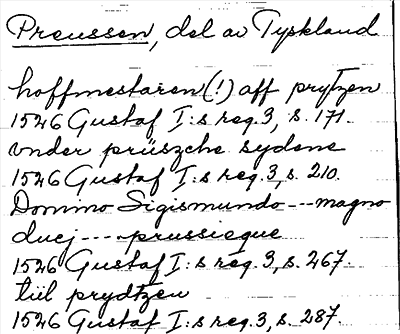 Preussen, del av Tyskland
hoffmestaren (!) aff prytzen
1526 Gustaf I:s reg. 3, s. 171.
vnder prüszche sydene
1526 Gustaf I:s reg. 3, s. 210.
Domino Sigismundo --- magno
ducj ---- prussieque
1526 Gustaf I:s reg. 3, s. 267.
tiil prydtzen
1526 Gustaf I:s reg. 3, s. 287.